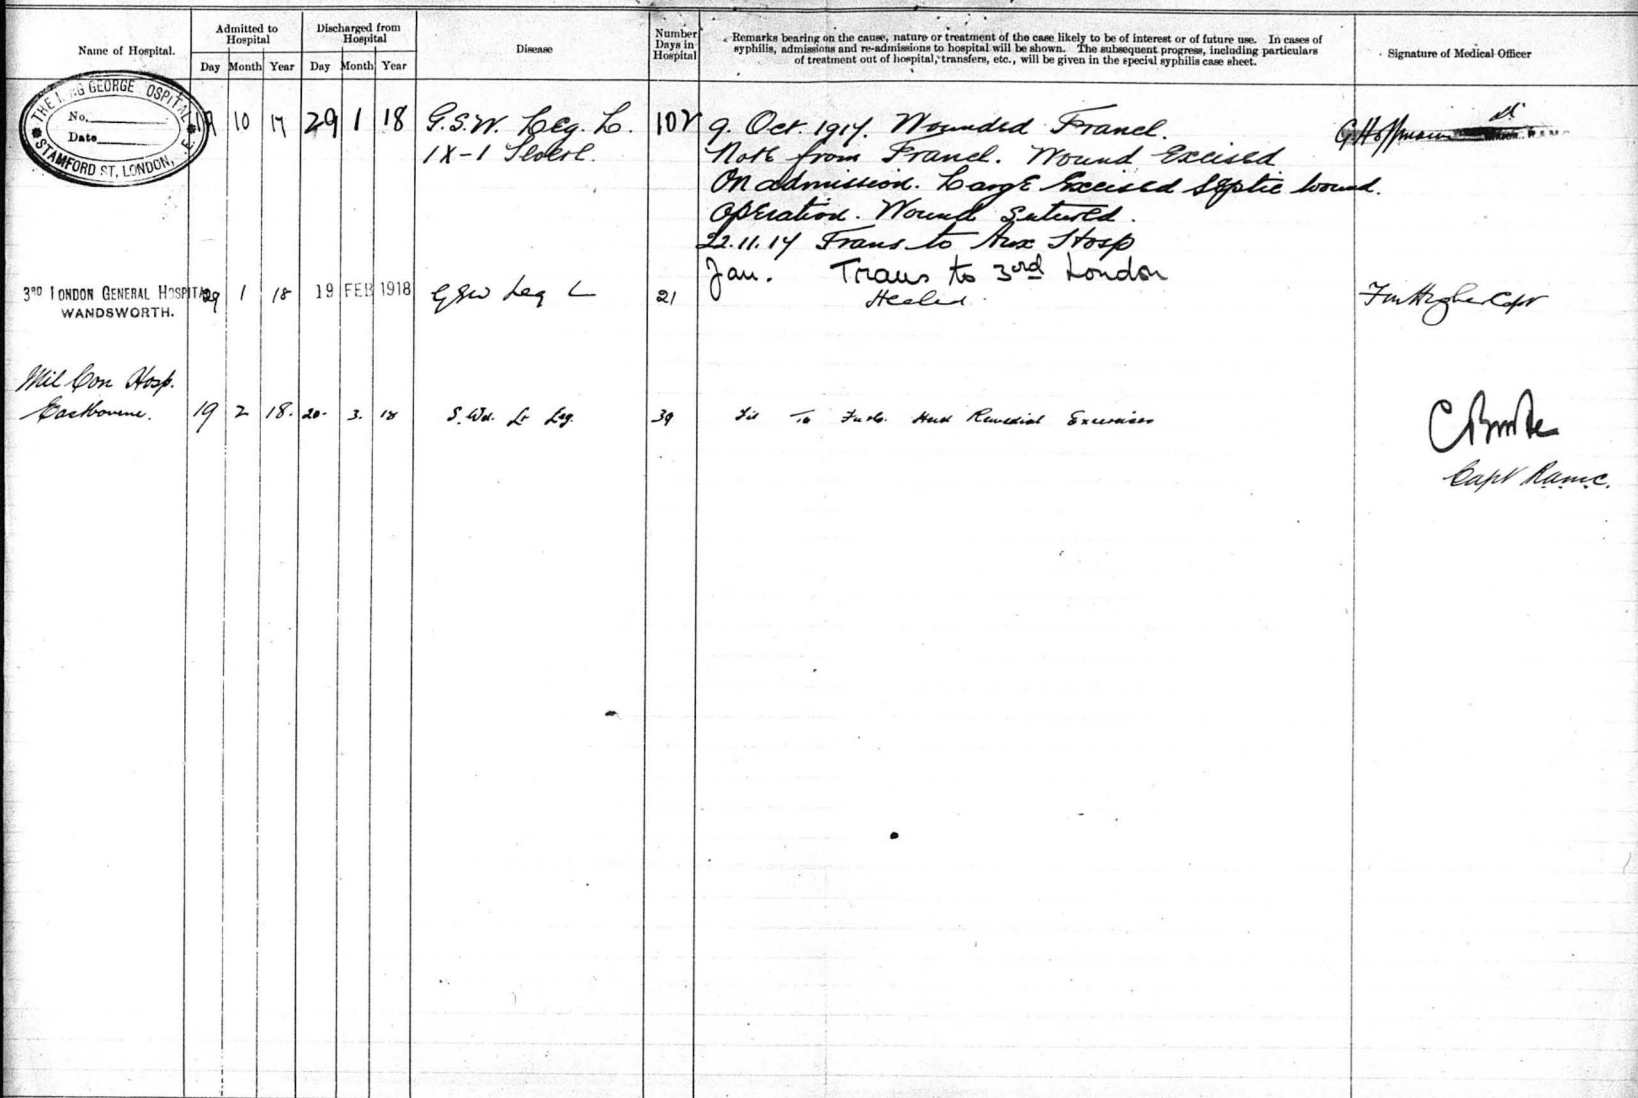 Name of Hospital.
Admitted to Hospital
Discharged from Hospital
Disease
Number Days in Hospital
Remarks bearing on the cause, nature or treatment of the case likely to be of interest or of future use. In cases of
syphilis, admissions and re-admissions to hospital will be shown. The subsequent progress, including particulars
of treatment out of hospital, transfers, etc., will be given in the special syphilis case sheet.
Signature of Medical Officer
Day Month Year Day Month Year
THE KING GEORGE HOSPITAL
No.
Date
STAMFORD ST. LONDON, S.E.
19 10 17 29 1 18 G.S.W. Leg. L. 102 9. Oct. 1917. Wounded France.
IX-1 Severe. Note from France. Wound Excised
On admission. Large Excised Septic Wound.
Operation. Wound Sutured.
22.11.17 Trans to Aux Hosp
Jan. Trans to 3rd London
3RD LONDON GENERAL HOSPITAL 29 1 18 19 FEB 1918 GSW Leg L 21 Healed.
WANDSWORTH. Capt
Mil Con Hosp.
Eastbourne. 19 2 18. 20. 3. 18 S. Wd. Lt Leg. 39 To Furlo. Had Remedial Exercises
Capt R.A.M.C.